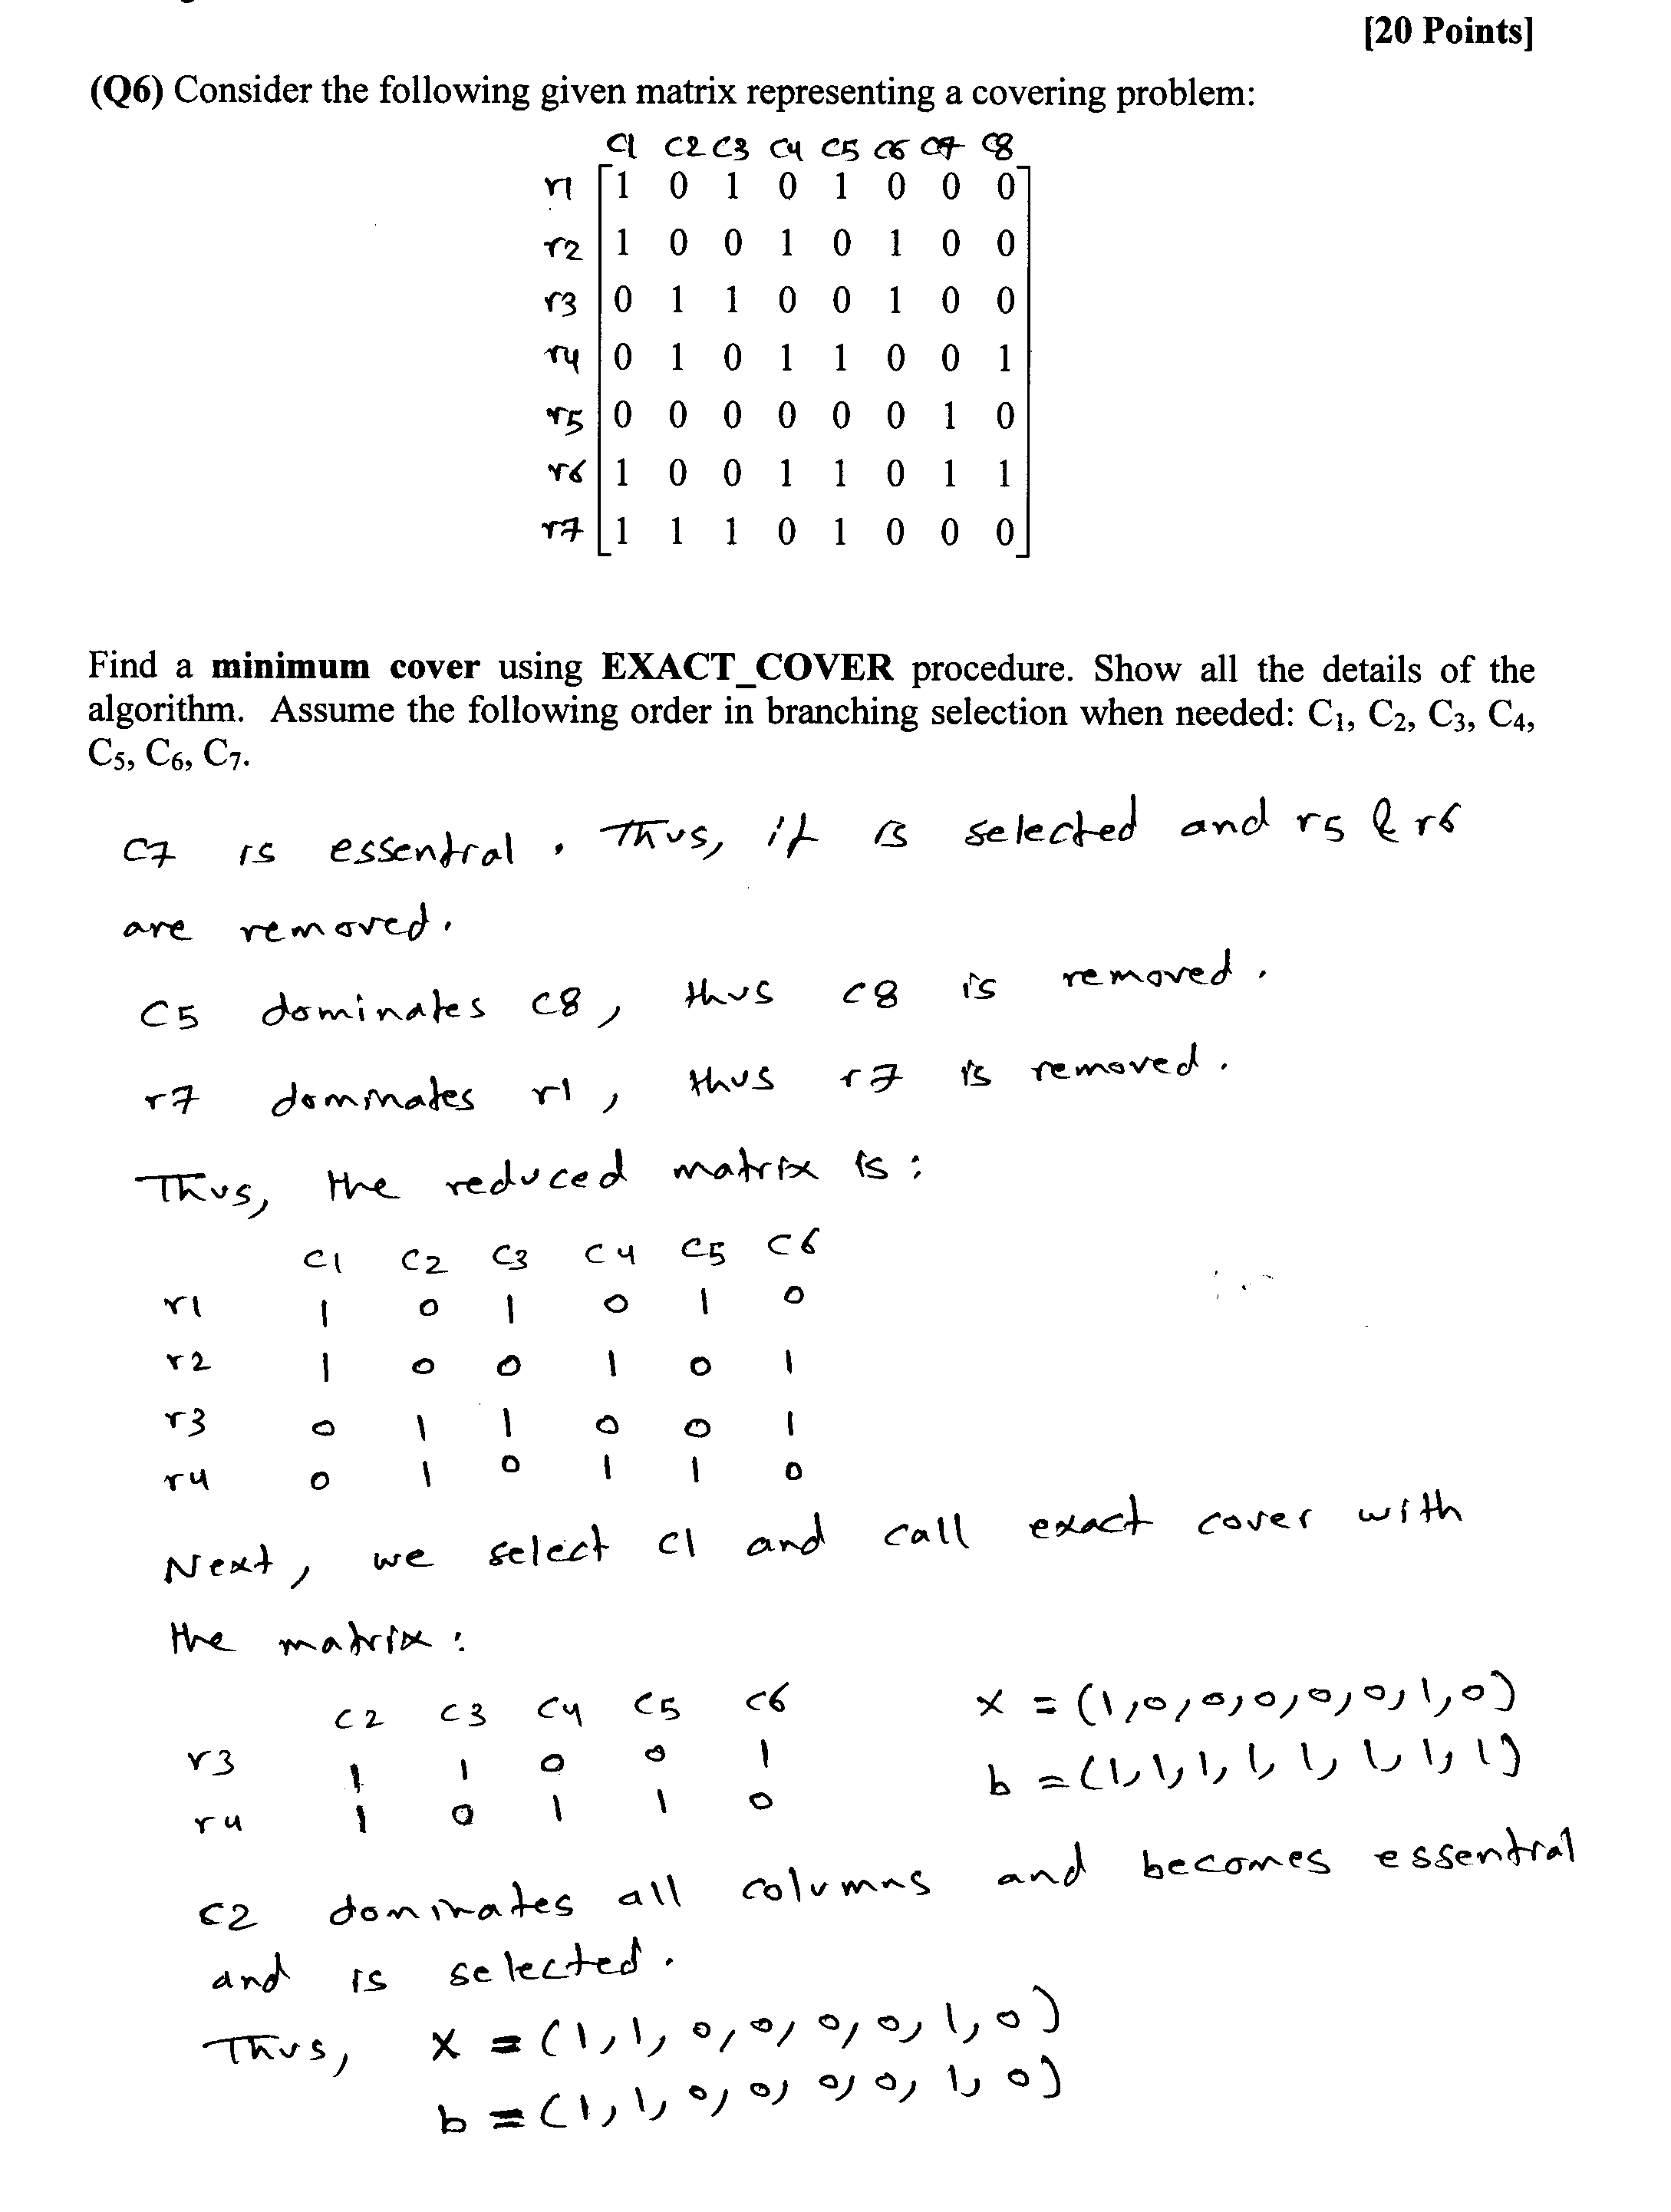 [20 Points]
(Q6) Consider the following given matrix representing a covering problem:
C1 C2 C3 C4 C5 C6 C7 C8
r1 1 0 1 0 1 0 0 0
r2 1 0 0 1 0 1 0 0
r3 0 1 1 0 0 1 0 0
r4 0 1 0 1 1 0 0 1
r5 0 0 0 0 0 0 1 0
r6 1 0 0 1 1 0 1 1
r7 1 1 1 0 1 0 0 0
Find a minimum cover using EXACT_COVER procedure. Show all the details of the
algorithm. Assume the following order in branching selection when needed: C1, C2, C3, C4,
C5, C6, C7.
C7 is essential. Thus, it is selected and r5 & r6
are removed.
C5 dominates C8, thus C8 is removed.
r7 dominates r1, thus r7 is removed.
Thus, the reduced matrix is:
C1 C2 C3 C4 C5 C6
r1 1 0 1 0 1 0
r2 1 0 0 1 0 1
r3 0 1 1 0 0 1
r4 0 1 0 1 1 0
Next, we select C1 and call exact cover with
the matrix:
C2 C3 C4 C5 C6
r3 1 1 0 0 1
r4 1 0 1 1 0
x = (1,0,0,0,0,0,1,0)
b = (1,1,1,1,1,1,1,1)
C2 dominates all columns and becomes essential
and is selected.
Thus, x = (1,1,0,0,0,0,1,0)
b = (1,1,0,0,0,0,1,0)